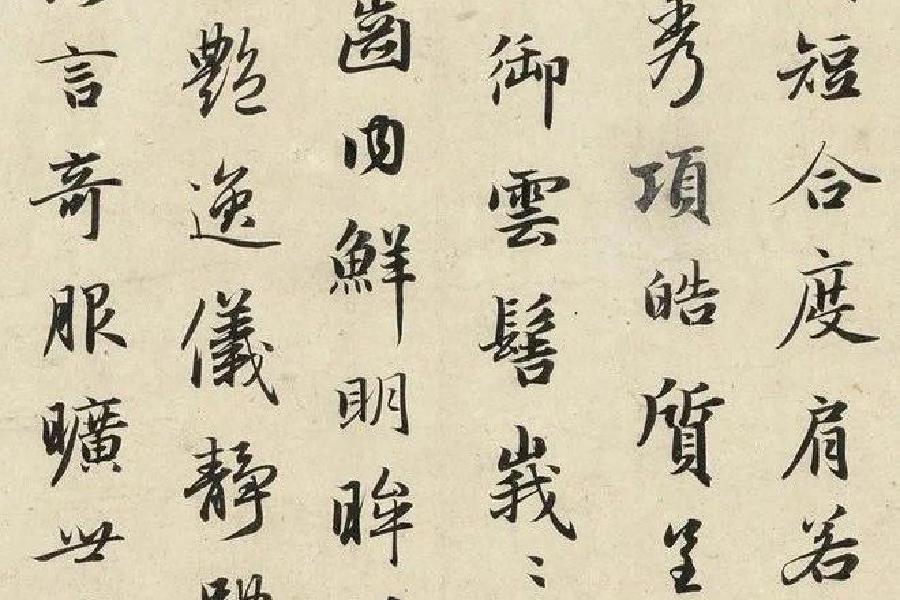 短合度肩若
秀項皓質呈
御雲髻峩〻
齒内鮮明眸
艶逸儀静
言竒服曠世